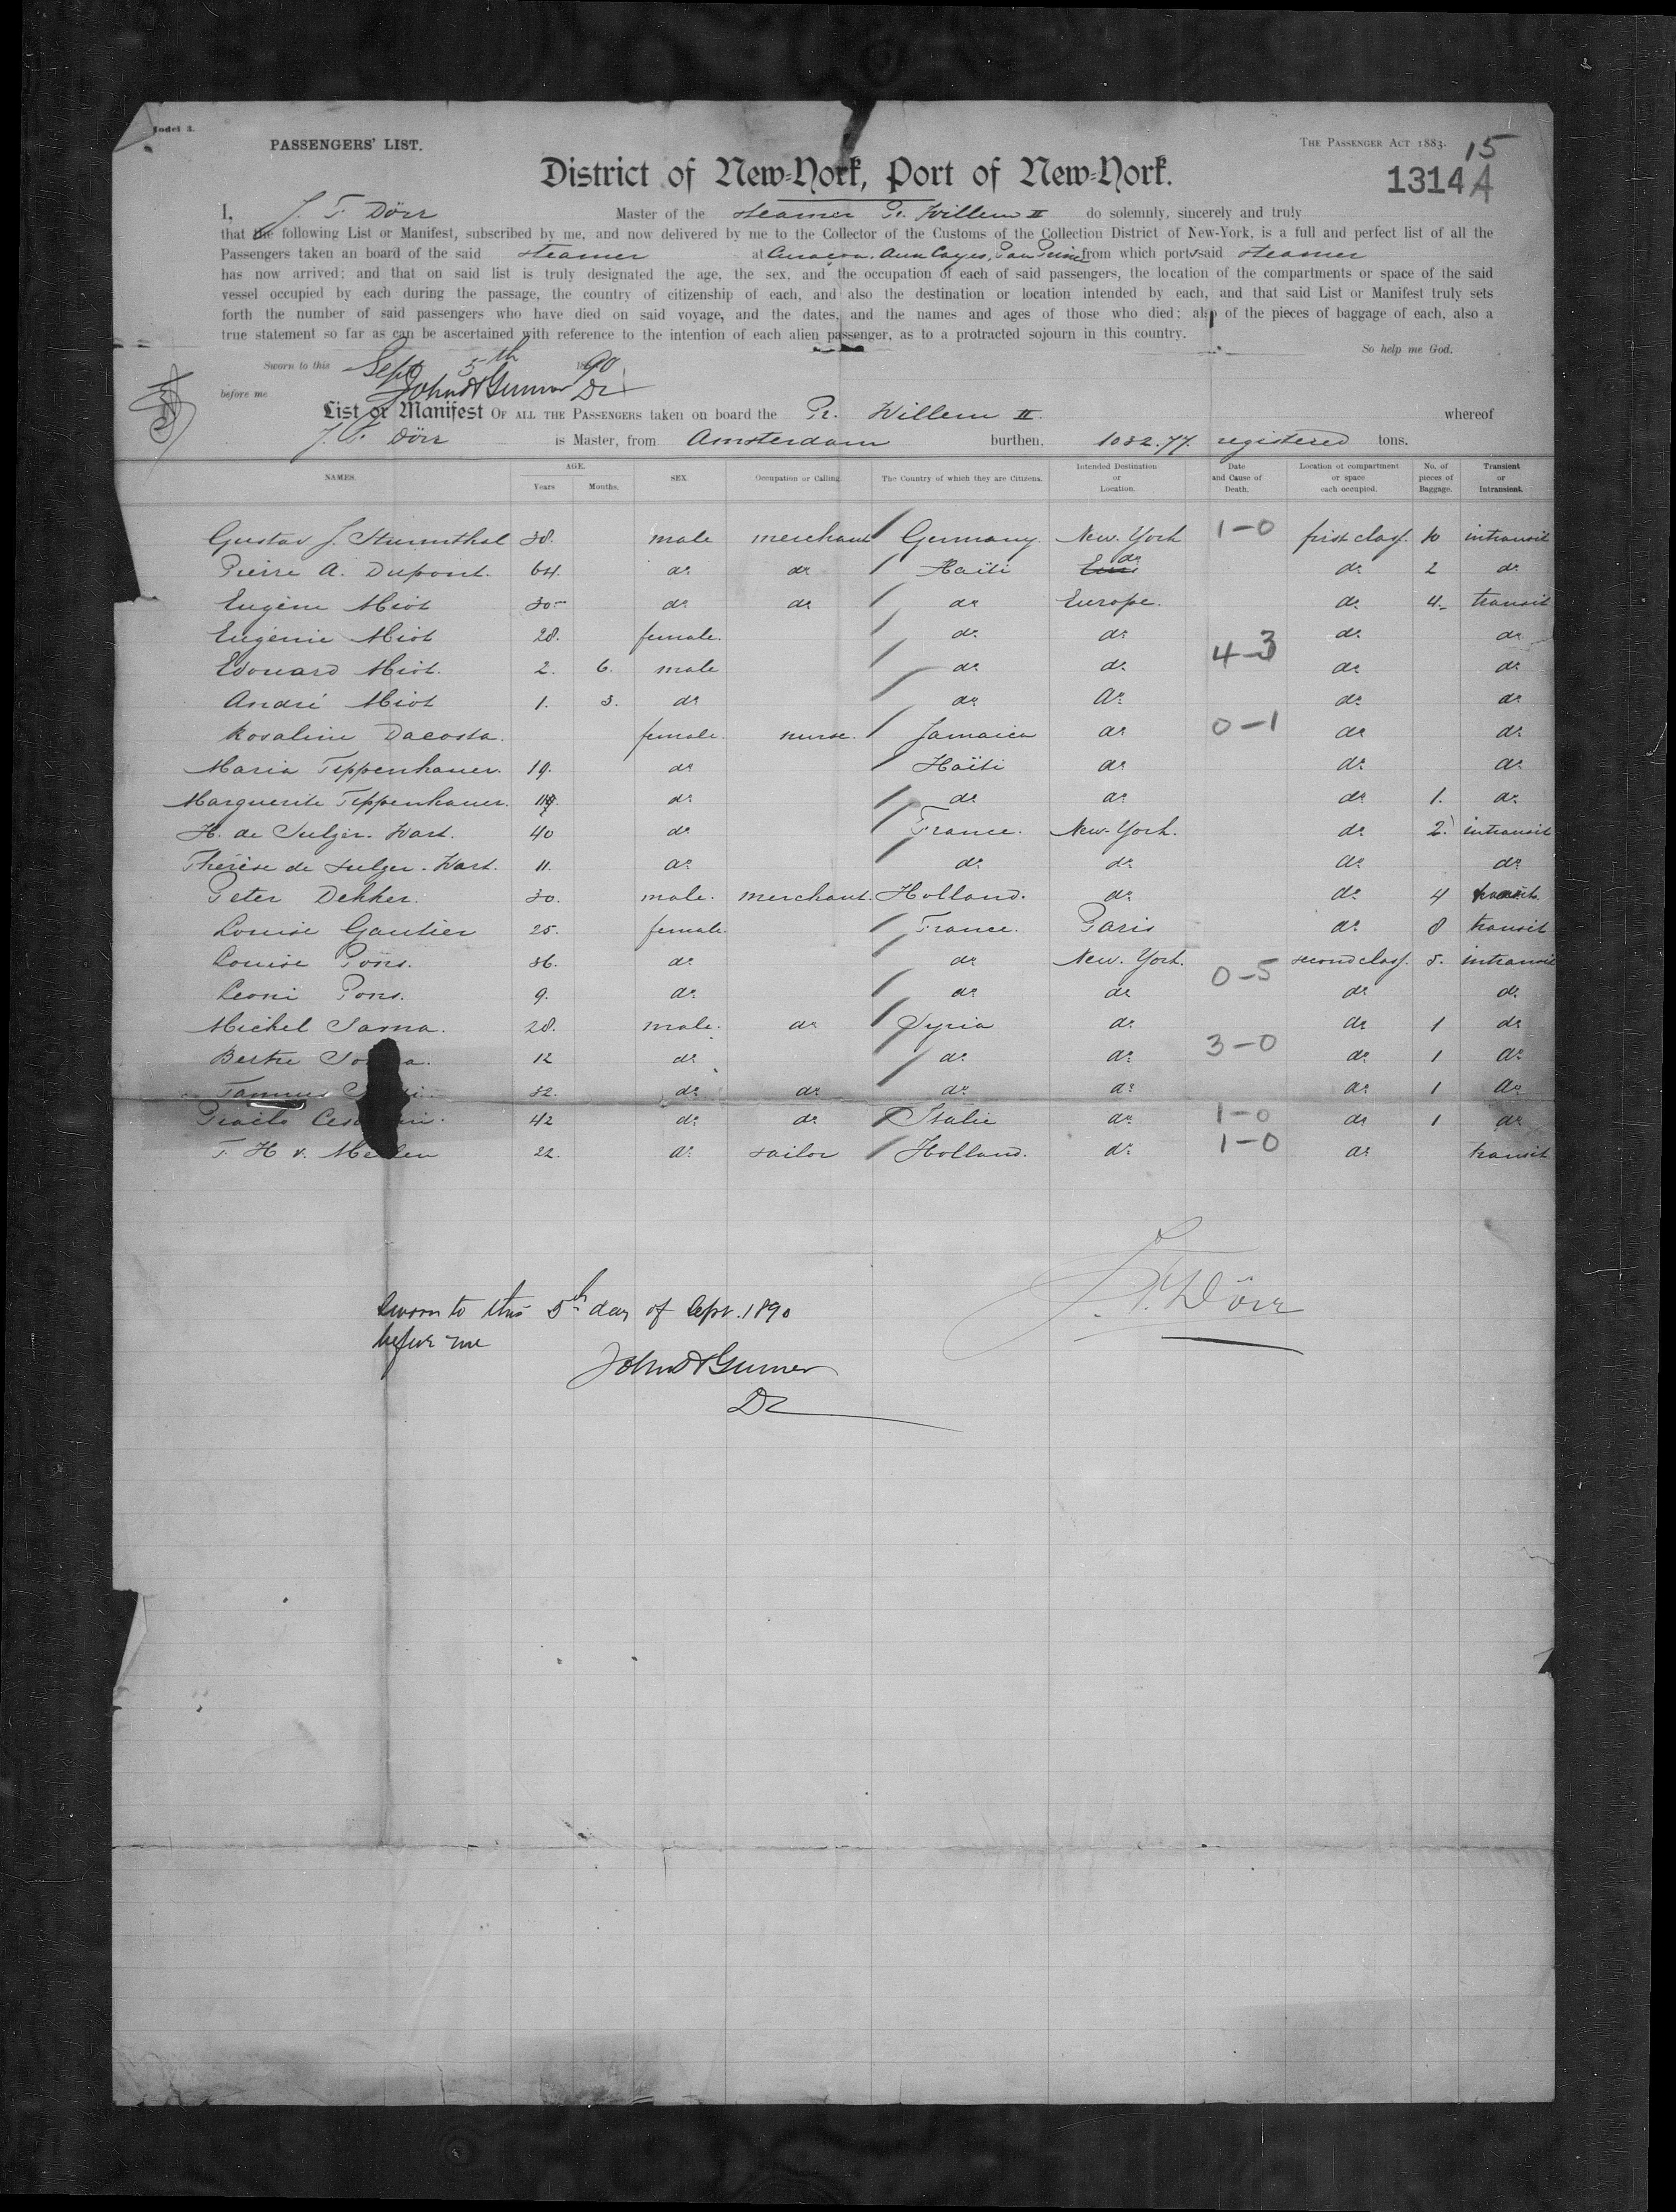 Model 3.
PASSENGERS' LIST.
THE PASSENGER ACT 1883.
15
1314 A
District of New-York, Port of New-York.
I, J. F. Dörr Master of the steamer Pr. Willem II do solemnly, sincerely and truly
that the following List or Manifest, subscribed by me, and now delivered by me to the Collector of the Customs of the Collection District of New-York, is a full and perfect list of all the
Passengers taken an board of the said steamer at Curacoa. Aux Cayes, Pau Prince from which ports said steamer
has now arrived; and that on said list is truly designated the age, the sex, and the occupation of each of said passengers, the location of the compartments or space of the said
vessel occupied by each during the passage, the country of citizenship of each, and also the destination or location intended by each, and that said List or Manifest truly sets
forth the number of said passengers who have died on said voyage, and the dates, and the names and ages of those who died; also of the pieces of baggage of each, also a
true statement so far as can be ascertained with reference to the intention of each alien passenger, as to a protracted sojourn in this country.
So help me God.
Sworn to this Sept 5th 1890
before me
List or Manifest OF ALL THE PASSENGERS taken on board the Pr. Willem II. whereof
J. F. Dörr is Master, from Amsterdam burthen, 1032.77. registered tons.
NAMES. AGE. Years Months. SEX Occupation or Calling The Country of which they are Citizens. Intended Destination or Location. Date and Cause of Death. Location of compartment or space each occupied. No. of pieces of Baggage. Transient or Intransient.
Gustav J. Sturmthal 38. male merchant Germany. New-York 1-0 first class. 10 intransit
Pierre A. Dupont. 64. do do Haïti do do 2 do
Eugène Miot 30 do do do Europe. do 4 transit
Eugénie Miot 28. female. do do do do
4-3
Edouard Miot. 2. 6. male do do do do
André Miot 1. 3. do do do do do
Rosaline Dacosta. female. nurse. Jamaica do 0-1 do do
Maria Tippenhauer. 19. do Haïti do do do
Marguerite Tippenhauer. do do do do 1. do
H. de Sulzer-Wart. 40 do France. New-York. do 2. intransit
Thérèse de Sulzer-Wart. 11. do do do do do
Peter Dekker. 30. male. merchant. Holland. do do 4
Louise Gautier 25. female. France. Paris do 8 transit
Louise Pons. 36. do do New-York. second class. 5. intransit
0-5
Leoni Pons. 9. do do do do do
Michel Sama. 28. male. do Syria do do 1 do
3-0
12 do do do do 1 do
32. do do do do do 1 do
42 do do Italie do 1-0 do 1 do
T H v. 22. do sailor Holland. do 1-0 do transit
J. F. Dörr
Sworn to this 5th day of Sept. 1890
before me